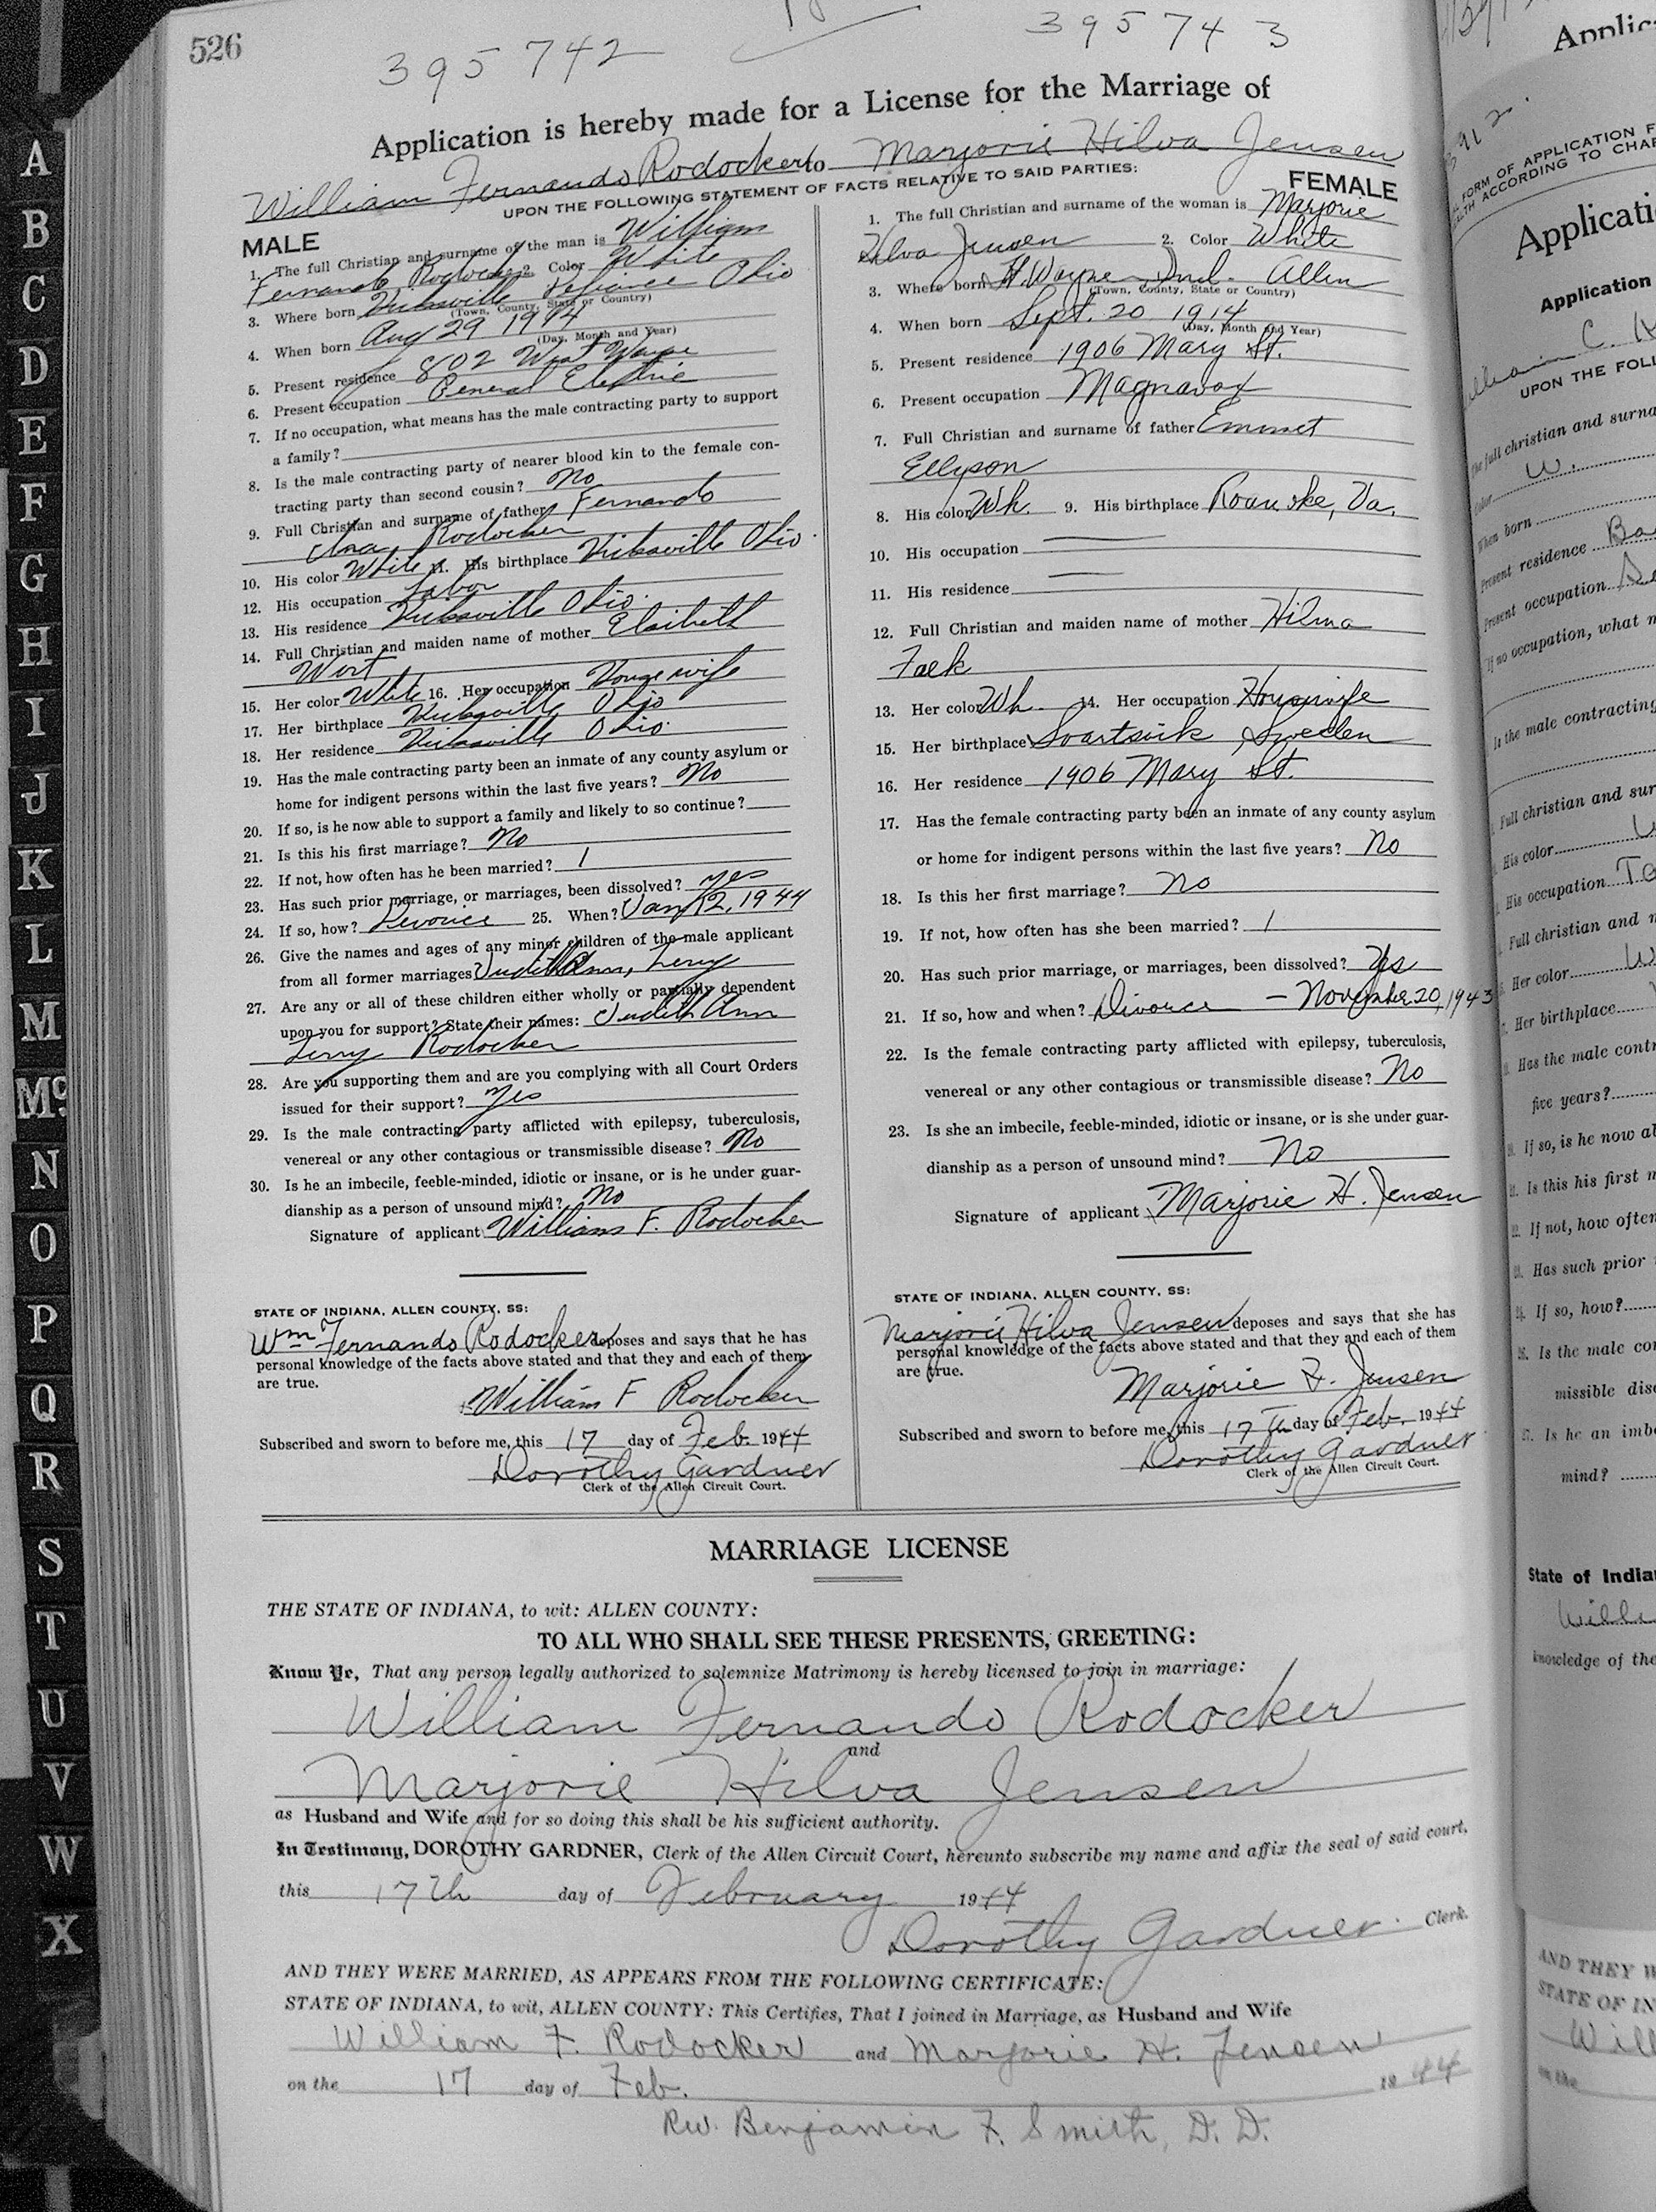 526
395742
395743
Application is hereby made for a License for the Marriage of
William Fernando Rodocker to Marjorie Hilva Jensen
UPON THE FOLLOWING STATEMENT OF FACTS RELATIVE TO SAID PARTIES:
MALE
1. The full Christian and surname of the man is William
Fernando Rodocker 2. Color White
3. Where born Hicksville Defiance Ohio
(Town, County, State or Country)
4. When born Aug 29 1914
(Day, Month and Year)
5. Present residence 802 West Wayne
6. Present occupation General Electric
7. If no occupation, what means has the male contracting party to support
a family?
8. Is the male contracting party of nearer blood kin to the female con-
tracting party than second cousin? No
9. Full Christian and surname of father Fernando
Rodocker
10. His color White 11. His birthplace Hicksville Ohio.
12. His occupation Labor
13. His residence Hicksville Ohio.
14. Full Christian and maiden name of mother Elsibeth
Wort
15. Her color White 16. Her occupation Housewife
17. Her birthplace Hicksville Ohio
18. Her residence Hicksville Ohio.
19. Has the male contracting party been an inmate of any county asylum or
home for indigent persons within the last five years? No
20. If so, is he now able to support a family and likely to so continue?
21. Is this his first marriage? No
22. If not, how often has he been married? 1
23. Has such prior marriage, or marriages, been dissolved? yes
24. If so, how? Divorce 25. When? Jan 12, 1944
26. Give the names and ages of any minor children of the male applicant
from all former marriages Judith Ann, Jerry
27. Are any or all of these children either wholly or partially dependent
upon you for support? State their names: Judith Ann
Jerry Rodocker
28. Are you supporting them and are you complying with all Court Orders
issued for their support? Yes
29. Is the male contracting party afflicted with epilepsy, tuberculosis,
venereal or any other contagious or transmissible disease? No
30. Is he an imbecile, feeble-minded, idiotic or insane, or is he under guar-
dianship as a person of unsound mind? No
Signature of applicant William F. Rodocker
STATE OF INDIANA, ALLEN COUNTY, SS:
Wm Fernando Rodocker deposes and says that he has
personal knowledge of the facts above stated and that they and each of them
are true.
William F Rodocker
Subscribed and sworn to before me, this 17 day of Feb. 1944
Dorothy Gardner
Clerk of the Allen Circuit Court.
FEMALE
1. The full Christian and surname of the woman is Marjorie
Hilva Jensen 2. Color White
3. Where born Ft. Wayne Ind. Allen
(Town, County, State or Country)
4. When born Sept. 20 1914
(Day, Month and Year)
5. Present residence 1906 Mary St.
6. Present occupation Magnavox
7. Full Christian and surname of father Emmet
Ellyson
8. His color Wh. 9. His birthplace Roanoke, Va.
10. His occupation
11. His residence
12. Full Christian and maiden name of mother Hilma
Falk
13. Her color Wh. 14. Her occupation Housewife
15. Her birthplace Svartsvik, Sweden
16. Her residence 1906 Mary St.
17. Has the female contracting party been an inmate of any county asylum
or home for indigent persons within the last five years? No
18. Is this her first marriage? No
19. If not, how often has she been married? 1
20. Has such prior marriage, or marriages, been dissolved? Yes
21. If so, how and when? Divorce — November 20, 1943
22. Is the female contracting party afflicted with epilepsy, tuberculosis,
venereal or any other contagious or transmissible disease? No
23. Is she an imbecile, feeble-minded, idiotic or insane, or is she under guar-
dianship as a person of unsound mind? No
Signature of applicant Marjorie H. Jensen
STATE OF INDIANA, ALLEN COUNTY, SS:
Marjorie Hilva Jensen deposes and says that she has
personal knowledge of the facts above stated and that they and each of them
are true.
Marjorie H. Jensen
Subscribed and sworn to before me, this 17 Th day of Feb. 1944
Dorothy Gardner
Clerk of the Allen Circuit Court.
MARRIAGE LICENSE
THE STATE OF INDIANA, to wit: ALLEN COUNTY:
TO ALL WHO SHALL SEE THESE PRESENTS, GREETING:
Know Ye, That any person legally authorized to solemnize Matrimony is hereby licensed to join in marriage:
William Fernando Rodocker
and
Marjorie Hilva Jensen
as Husband and Wife and for so doing this shall be his sufficient authority.
In Testimony, DOROTHY GARDNER, Clerk of the Allen Circuit Court, hereunto subscribe my name and affix the seal of said court,
this 17Th day of February 1944
Dorothy Gardner. Clerk.
AND THEY WERE MARRIED, AS APPEARS FROM THE FOLLOWING CERTIFICATE:
STATE OF INDIANA, to wit, ALLEN COUNTY: This Certifies, That I joined in Marriage, as Husband and Wife
William F. Rodocker and Marjorie H. Jensen
on the 17 day of Feb. 1944
Rev. Benjamin F. Smith, D. D.
A
B
C
D
E
F
G
H
I
J
K
L
M
Mc
N
O
P
Q
R
S
T
U
V
W
X